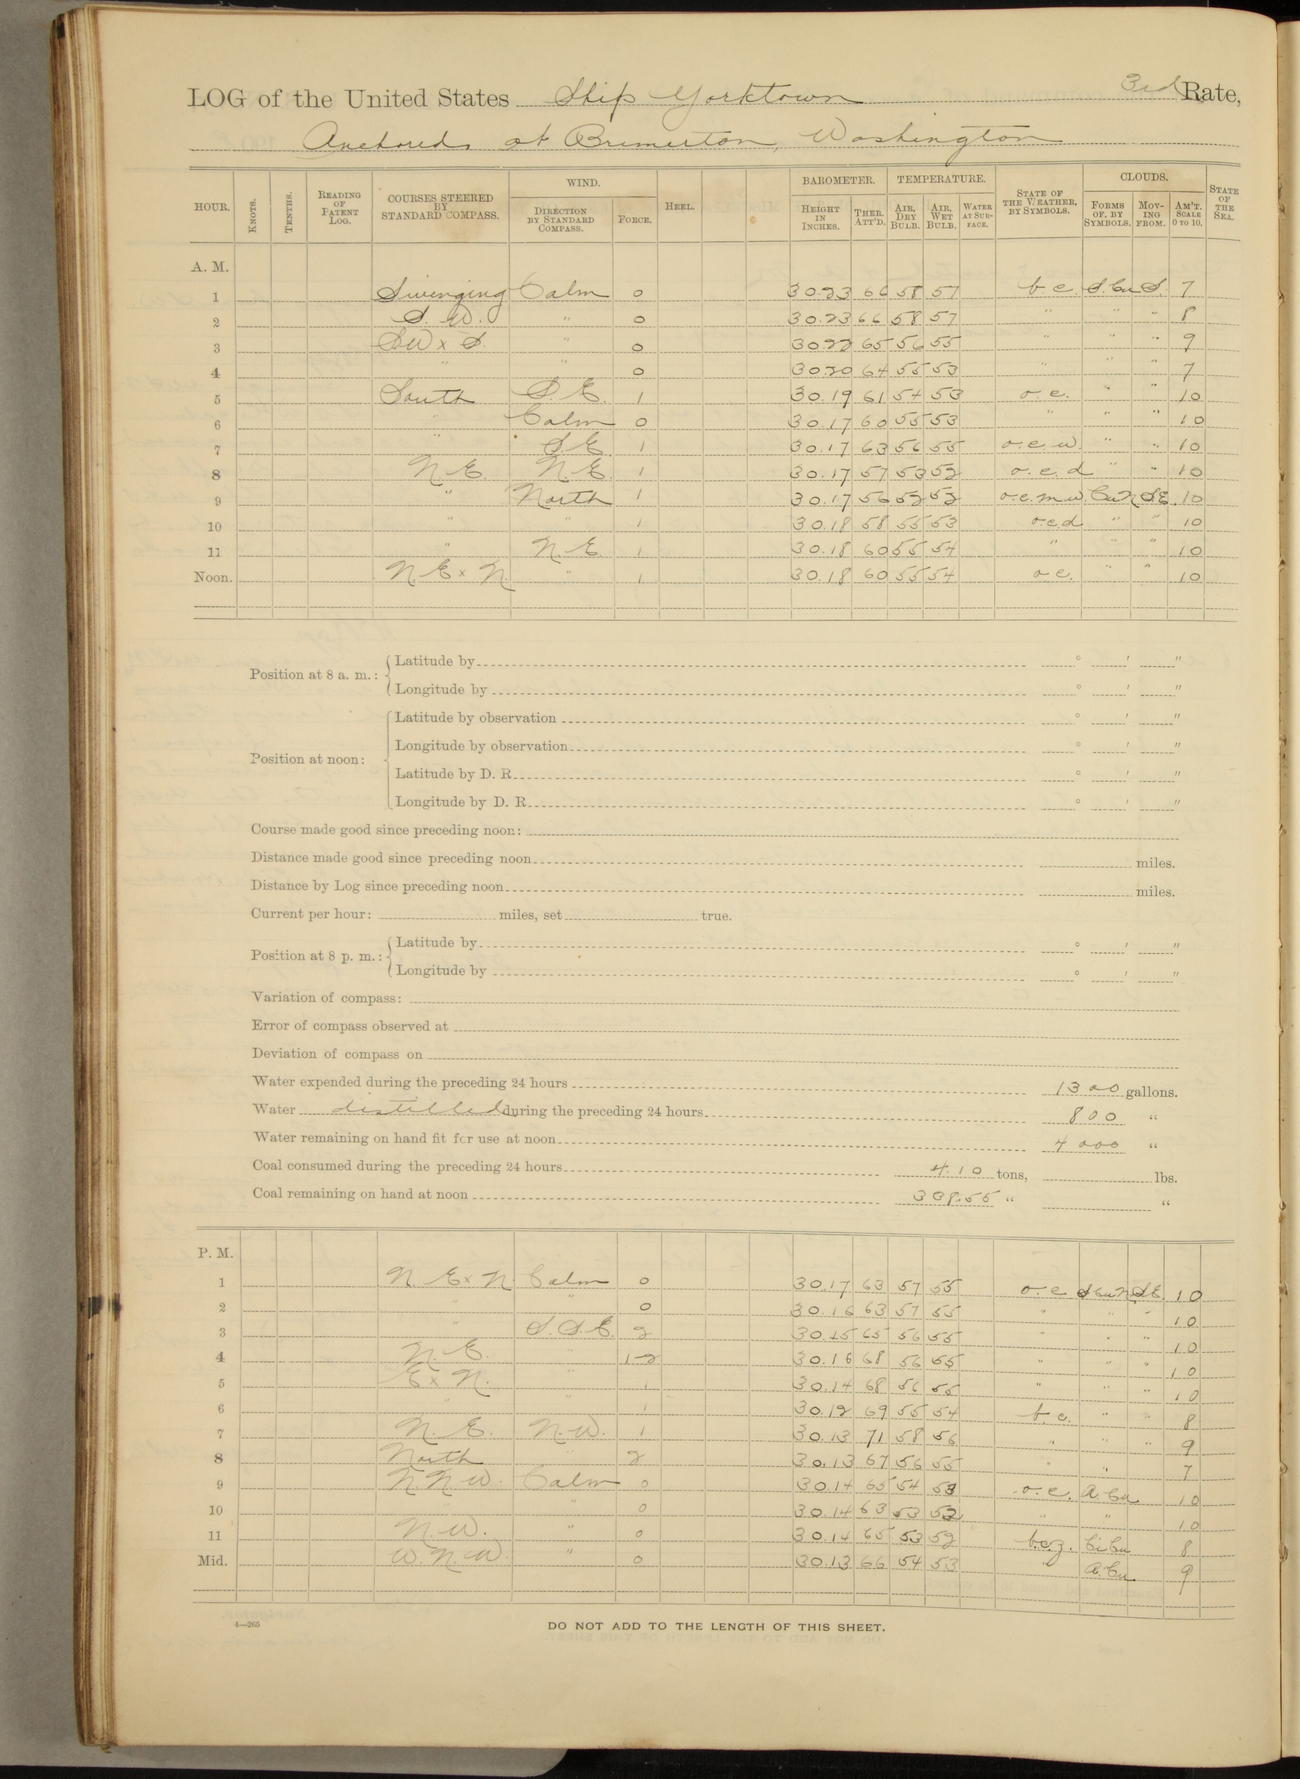 LOG of the United States Ship Yorktown 3rd Rate,
Anchored at Bremerton, Washington
HOUR. KNOTS. TENTHS. READING OF PATENT LOG. COURSES STEERED BY STANDARD COMPASS. WIND. DIRECTION BY STANDARD COMPASS. FORCE. HEEL. BAROMETER. HEIGHT IN INCHES. THER. ATT'D. TEMPERATURE. AIR, DRY BULB. AIR, WET BULB. WATER AT SURFACE. STATE OF THE WEATHER, BY SYMBOLS. CLOUDS. FORMS OF, BY SYMBOLS. MOVING FROM. AM'T. SCALE 0 TO 10. STATE OF THE SEA.
A. M.
1 Swinging Calm 0 30.23 66 58 57 b.c. S.Cu S. 7
2 S.W. " 0 30.23 66 58 57 " " " 8
3 SW x S. " 0 30.22 65 56 55 " " " 9
4 " " 0 30.20 64 55 53 " " " 7
5 South S.E. 1 30.19 61 54 53 o.c. " " 10
6 " Calm 0 30.17 60 55 53 " " " 10
7 " S.E. 1 30.17 63 56 55 o.c.w. " " 10
8 N.E. N.E. 1 30.17 57 53 52 o.c.d " " 10
9 " North 1 30.17 56 52 52 o.c.m.w. CuN S.E. 10
10 " " 1 30.18 58 55 53 o.c.d " " 10
11 " N.E. 1 30.18 60 55 54 " " " 10
Noon. N.E x N. " 1 30.18 60 55 54 o.c. " " 10
Position at 8 a. m.: Latitude by ° ' "
Longitude by ° ' "
Position at noon: Latitude by observation ° ' "
Longitude by observation ° ' "
Latitude by D. R. ° ' "
Longitude by D. R. ° ' "
Course made good since preceding noon:
Distance made good since preceding noon miles.
Distance by Log since preceding noon miles.
Current per hour: miles, set true.
Position at 8 p. m.: Latitude by ° ' "
Longitude by ° ' "
Variation of compass:
Error of compass observed at
Deviation of compass on
Water expended during the preceding 24 hours 1300 gallons.
Water distilled during the preceding 24 hours 800 "
Water remaining on hand fit for use at noon 4000 "
Coal consumed during the preceding 24 hours 4.10 tons, lbs.
Coal remaining on hand at noon "  "
P. M.
1 N.E x N. Calm 0 30.17 63 57 55 o.c. SCuN SE. 10
2 " " 0 30.16 63 57 55 " " " 10
3 " S.S.E. 2 30.15 65 56 55 " " " 10
4 N.E. " 1-2 30.16 68 56 55 " " " 10
5 E x N. " 1 30.14 68 56 55 " " " 10
6 " " 1 30.12 69 55 54 b.c. " " 8
7 N.E. N.W. 1 30.13 71 58 56 " " " 9
8 North " 2 30.13 67 56 55 " " 7
9 N N W. Calm 0 30.14 65 54 53 o.c. A.Cu 10
10 " " 0 30.14 63 53 52 " " 10
11 N.W. " 0 30.14 65 53 52 b.c.z. CiCu 8
Mid. W.N.W. " 0 30.13 66 54 53 " A.Cu 9
4—265
DO NOT ADD TO THE LENGTH OF THIS SHEET.